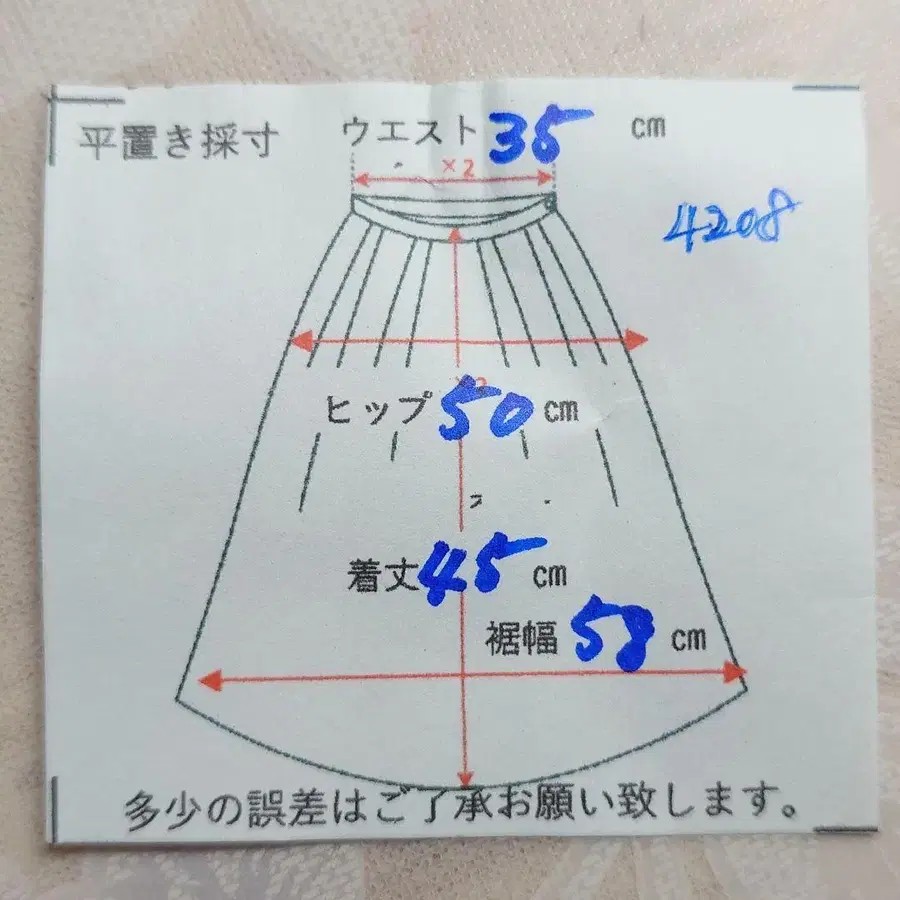 平置き採寸 ウエスト 35 cm
×2
4208
ヒップ 50 cm
着丈 45 cm
裾幅 58 cm
多少の誤差はご了承お願い致します。